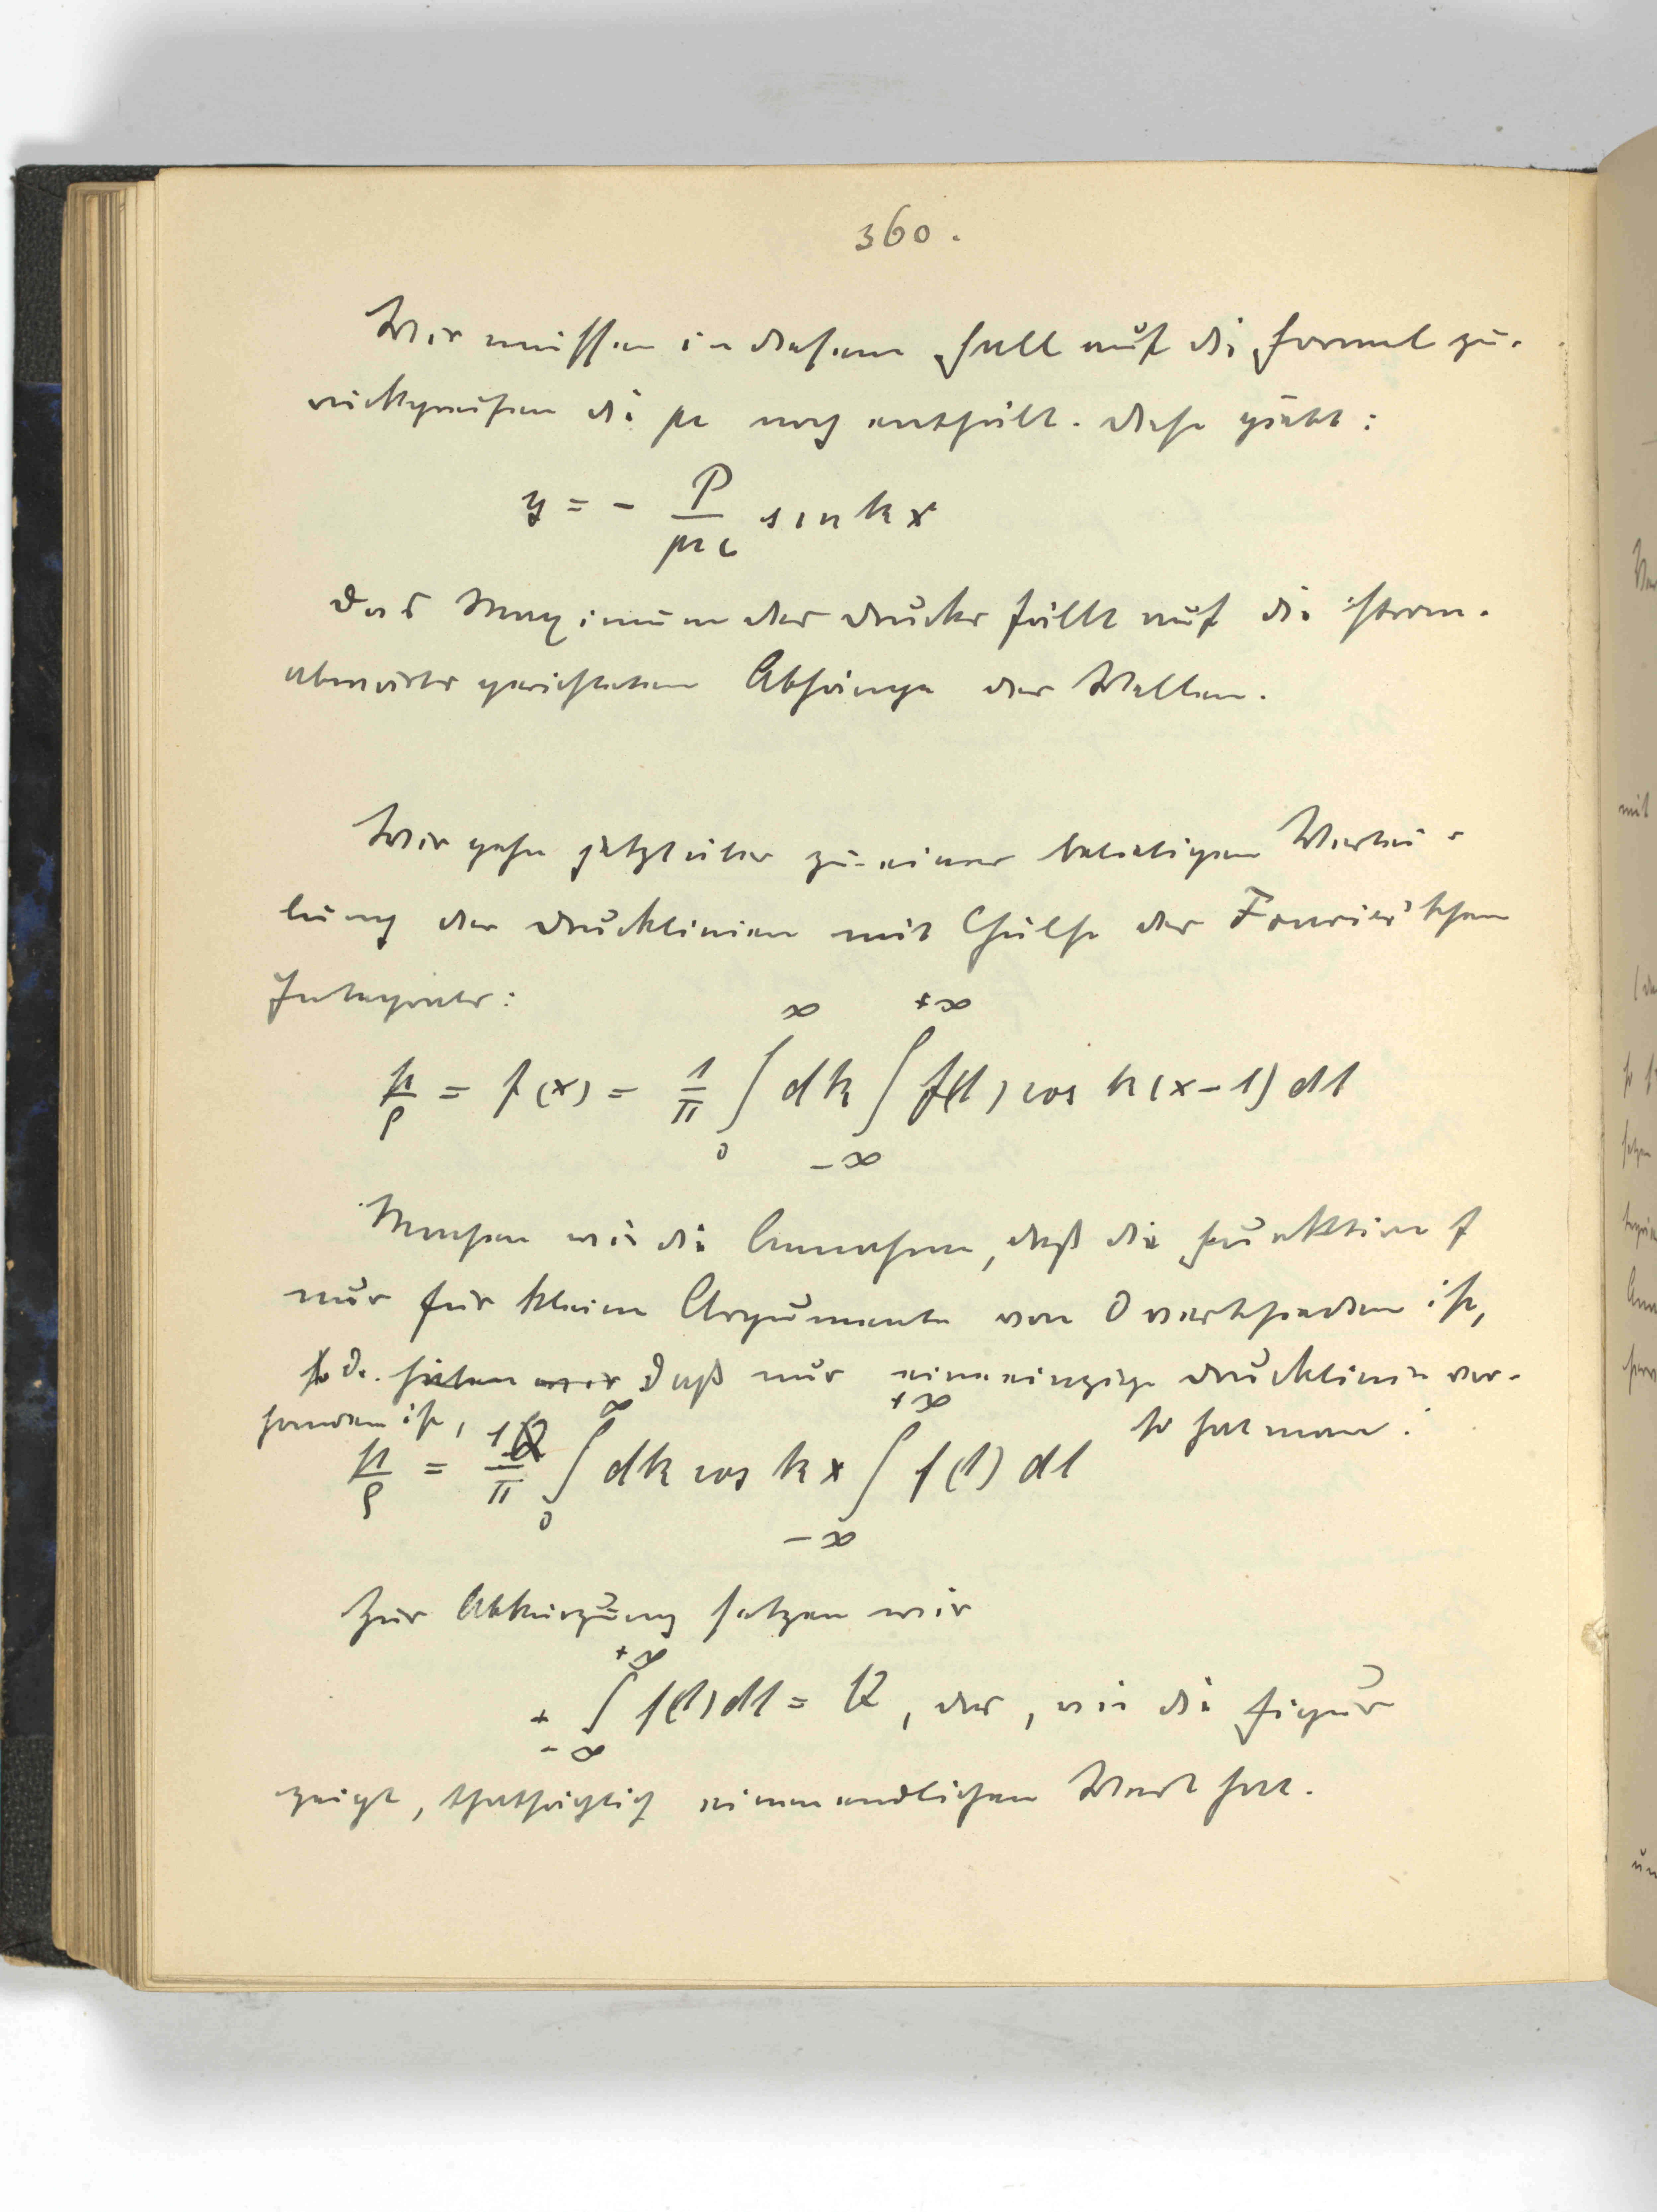 360.
Wir müssen in diesem Fall auf die Formel zu-
rückgreifen die μ noch enthält. Diese giebt:
y = - P/μc sin kx
Das Maximum des Drucks fällt auf die strom-
abwärts gerichteten Abhänge der Wellen.
Wir gehn jetzt über zu einer beliebigen Vertei-
lung der Drucklinien mit Hülfe des Fourier'schen
Integrals:
p/ρ = f(x) = 1/π ∫₀^∞ dk ∫₋∞^+∞ f(λ) cos k(x-λ) dλ
Machen wir die Annahme, daß die Funktion f
nur für kleine Argumente von 0 verschieden ist,
d. daß nur eine einzige Drucklinie vor-
handen ist, so hat man:
p/ρ = 1/π ∫₀^∞ dk cos kx ∫₋∞^+∞ f(λ) dλ
Zur Abkürzung setzen wir
+ ∫₋∞^+∞ f(λ) dλ = Q, das, wie die Figur
zeigt, thatsächlich einen endlichen Wert hat.